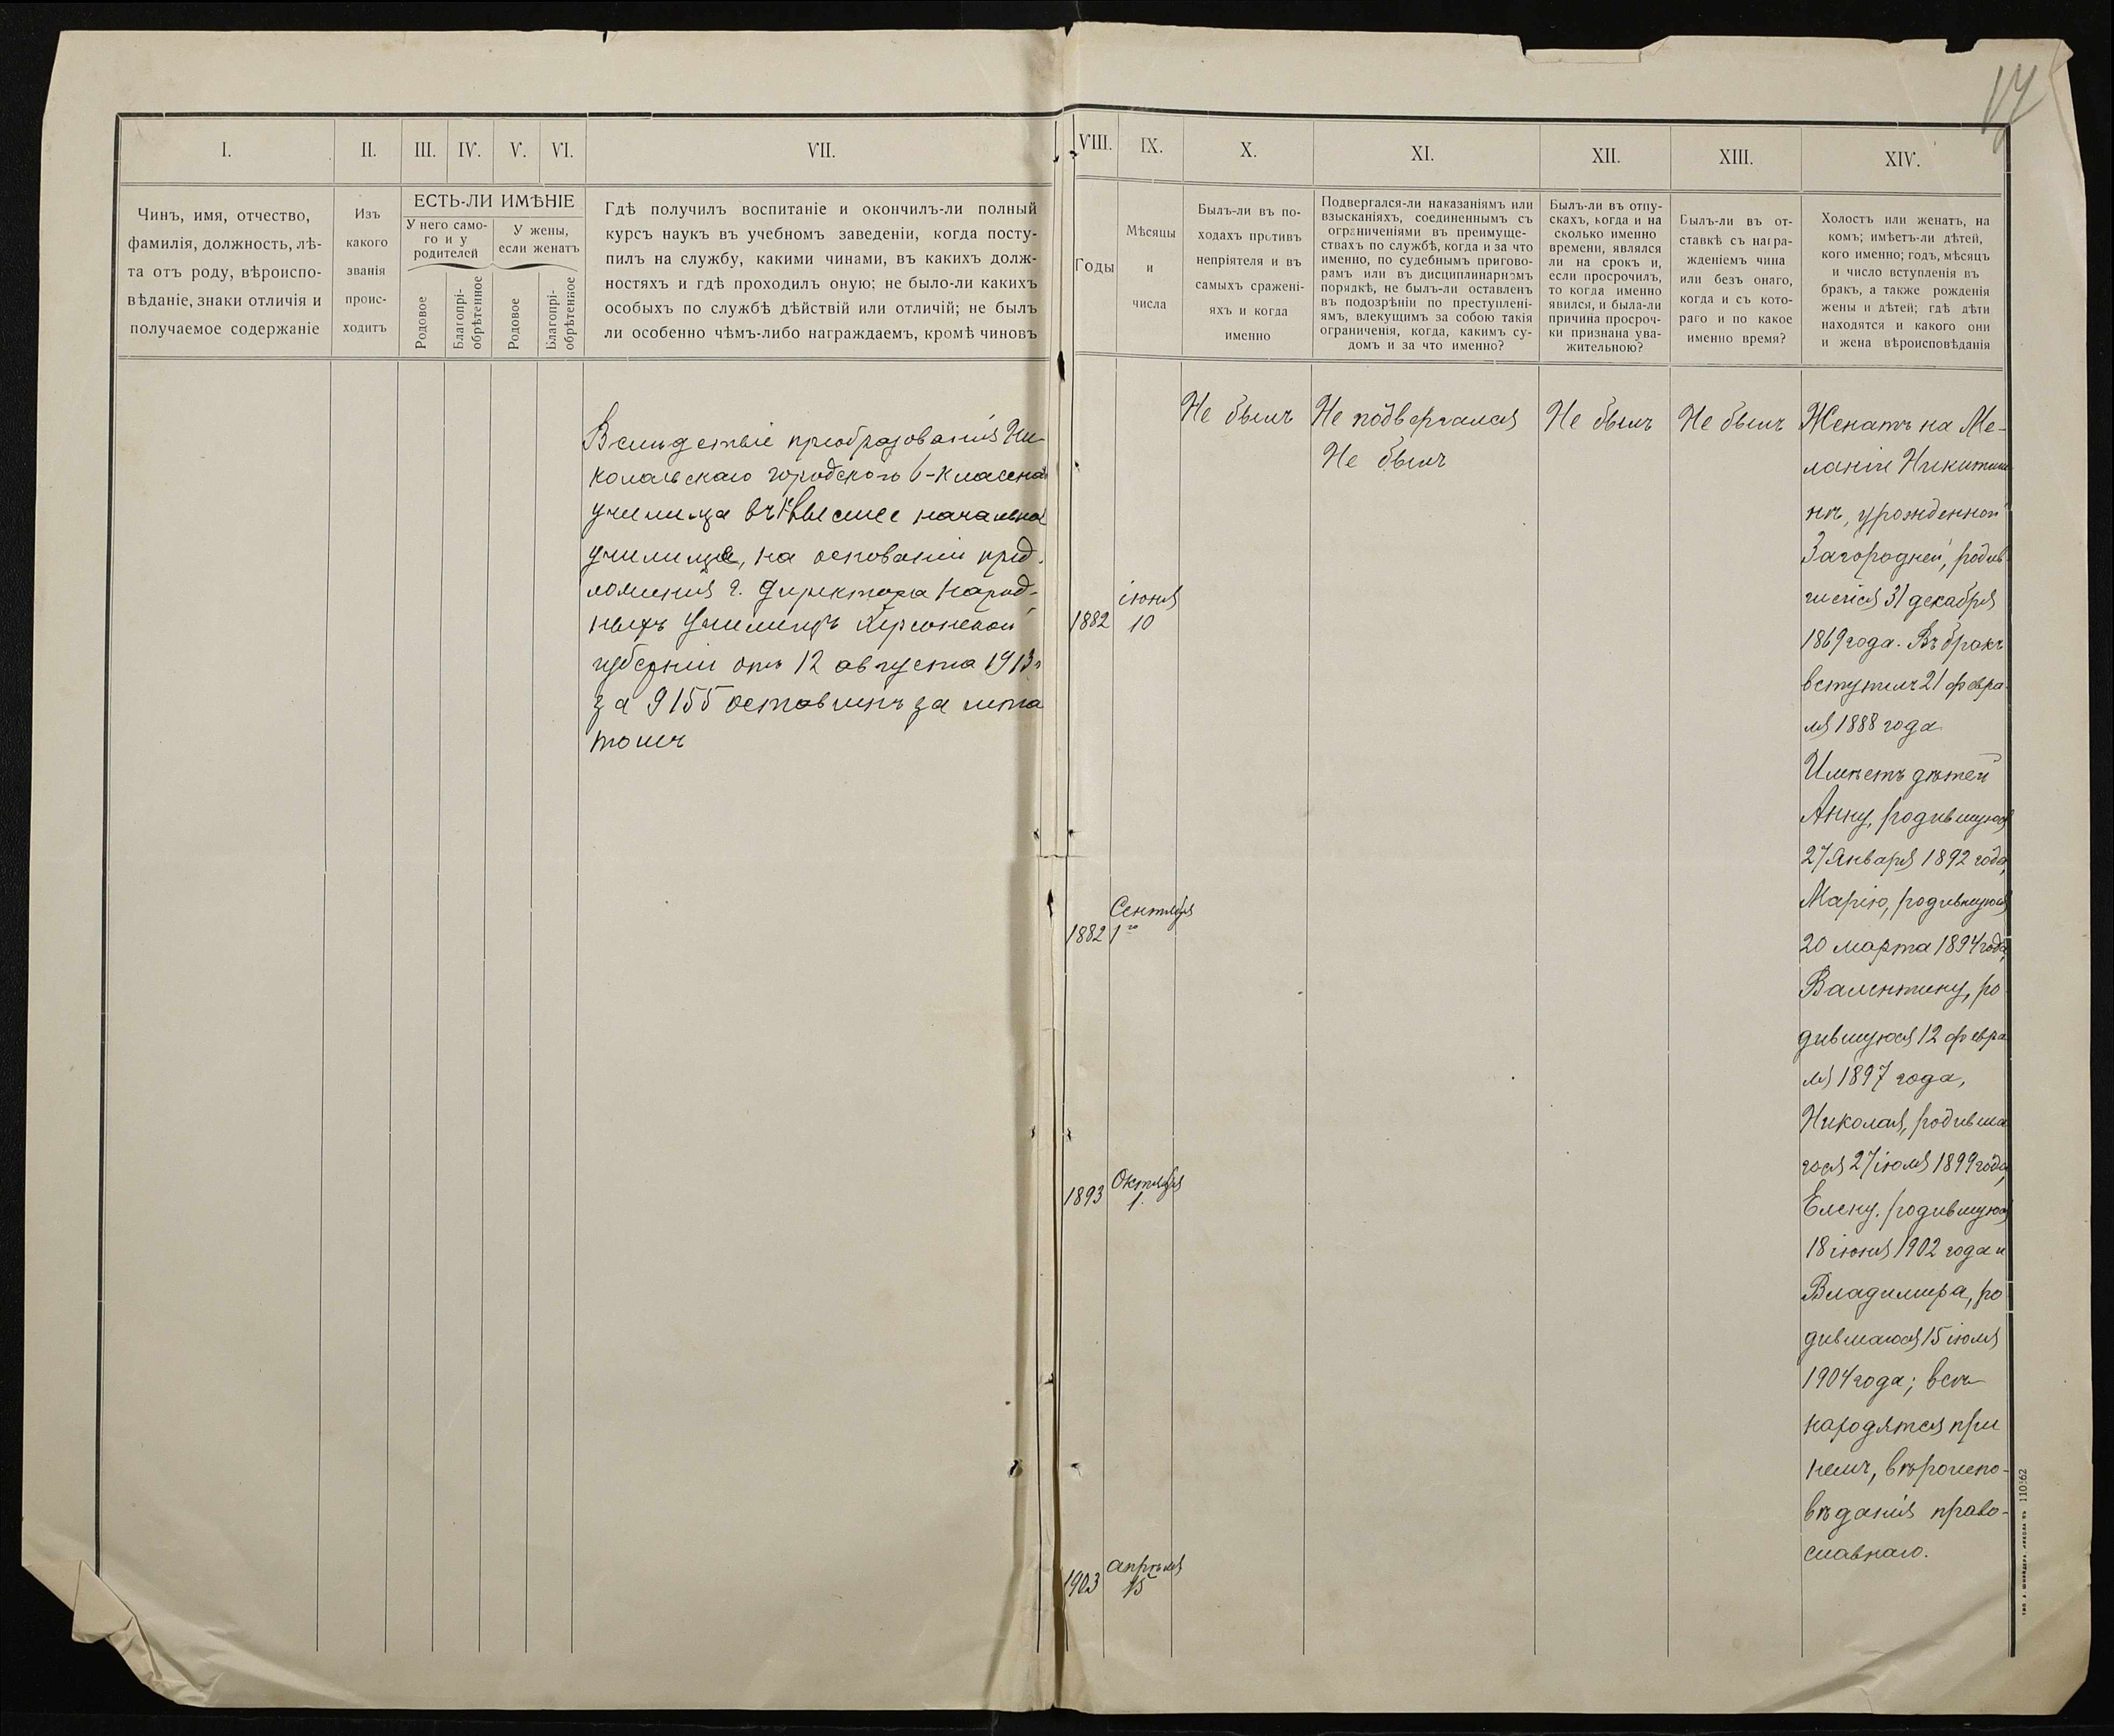 17
I.
II.
III.
IV.
V.
VI.
VII.
VIII.
IX.
X.
XI.
XII.
XIII.
XIV.
Чинъ, имя, отчество,
фамилія, должность, лѣ-
та отъ роду, вѣроиспо-
вѣданіе, знаки отличія и
получаемое содержаніе
Изъ
какого
званія
проис-
ходитъ
ЕСТЬ-ЛИ ИМѢНІЕ
У него само-
го и у
родителей
У жены,
если женатъ
Родовое
Благопрі-
обрѣтенное
Родовое
Благопрі-
обрѣтенное
Гдѣ получилъ воспитаніе и окончилъ-ли полный
курсъ наукъ въ учебномъ заведеніи, когда посту-
пилъ на службу, какими чинами, въ какихъ долж-
ностяхъ и гдѣ проходилъ оную; не было-ли какихъ
особыхъ по службѣ дѣйствій или отличій; не былъ
ли особенно чѣмъ-либо награждаемъ, кромѣ чиновъ
Годы
Мѣсяцы
и
числа
Былъ-ли въ по-
ходахъ противъ
непріятеля и въ
самыхъ сражені-
яхъ и когда
именно
Подвергался-ли наказаніямъ или
взысканіяхъ, соединеннымъ съ
ограниченіями въ преимуще-
ствахъ по службѣ, когда и за что
именно, по судебнымъ пригово-
рамъ или въ дисциплинарномъ
порядкѣ, не былъ-ли оставленъ
въ подозрѣніи по преступлені-
ямъ, влекущимъ за собою такія
ограниченія, когда, какимъ су-
домъ и за что именно?
Былъ-ли въ отпу-
скахъ, когда и на
сколько именно
времени, являлся
ли на срокъ и,
если просрочилъ,
то когда именно
явился, и была-ли
причина просроч-
ки признана ува-
жительною?
Былъ-ли въ от-
ставкѣ съ награ-
жденіемъ чина
или безъ онаго,
когда и съ кото-
раго и по какое
именно время?
Холостъ или женатъ, на
комъ; имѣетъ-ли дѣтей,
кого именно; годъ, мѣсяцъ
и число вступленія въ
бракъ, а также рожденія
жены и дѣтей; гдѣ дѣти
находятся и какого они
и жена вѣроисповѣданія
Вслѣдствіе преобразованія Ни-
колаевскаго городского 6-класснаго
училища въ 1 высшее начальное
училище, на основаніи пред-
ложенія г. Директора Народ-
ныхъ Училищъ Херсонской
губерніи отъ 12 августа 1913 г
за 9155 оставленъ за шта
томъ
1882
іюня
10
1882
Сентября
1го
1893
Октября
1.
1903
апрѣля
15
Не былъ
Не подвергался
Не былъ
Не былъ
Не былъ
Женатъ на Ме-
ланіи Никитиш-
нѣ, урожденной
Загородней, родив
шейся 31 декабря
1869 года. Въ бракъ
вступилъ 21 февра
ля 1888 года
Имѣетъ дѣтей
Анну, родившуюся
27 Января 1892 года,
Марію, родившуюся
20 марта 1894 года,
Валентину, ро
дившуюся 12 февра
ля 1897 года,
Николая, родивша
гося 27 іюля 1899 года,
Елену, родившуюся
18 іюня 1902 года и
Владиміра, ро
дившагося 15 іюля
1904 года; всѣ
находятся при
немъ, вѣроиспо-
вѣданія право-
славнаго.
110562